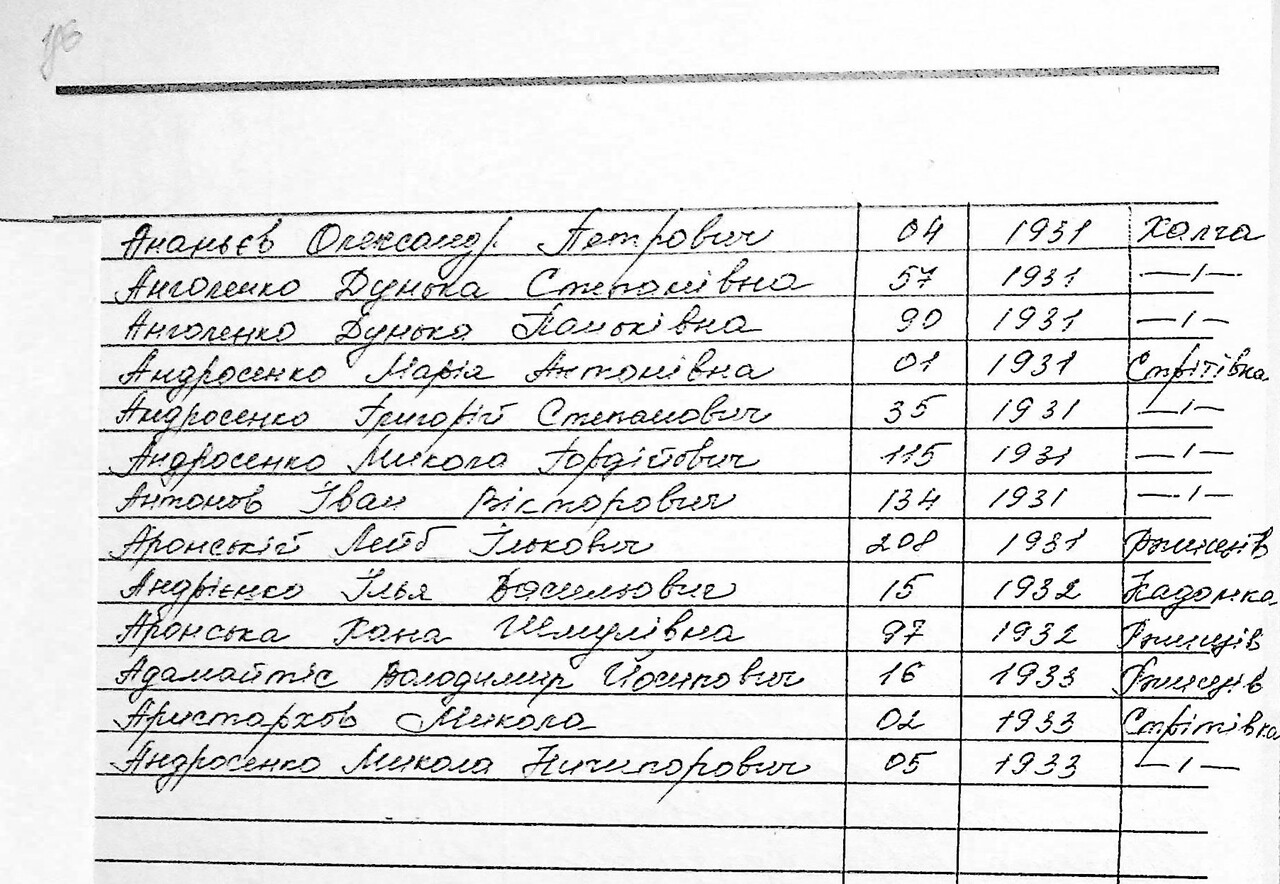 Ананьєв Олександр Петрович 04 1931 Халча
Анголенко Дунька Степанівна 57 1931 —ı—
Анголенко Дунька Паньківна 90 1931 —ı—
Андросенко Марія Антонівна 01 1931 Стрітівка
Андросенко Григорій Степанович 35 1931 —ı—
Андросенко Микола Гордійович 115 1931 —ı—
Антонов Іван Вікторович 134 1931 —ı—
Аронській Лейб Ількович 208 1931 Ржищів
Андрієнко Ілья Васильович 15 1932 Кадомка
Аронська Хана Шмулівна 97 1932 Ржищів
Адамайтіс Володимир Йосипович 16 1933 Ржищів
Аристархов Микола 02 1933 Стрітівка
Андросенко Микола Ничипорович 05 1933 —ı—